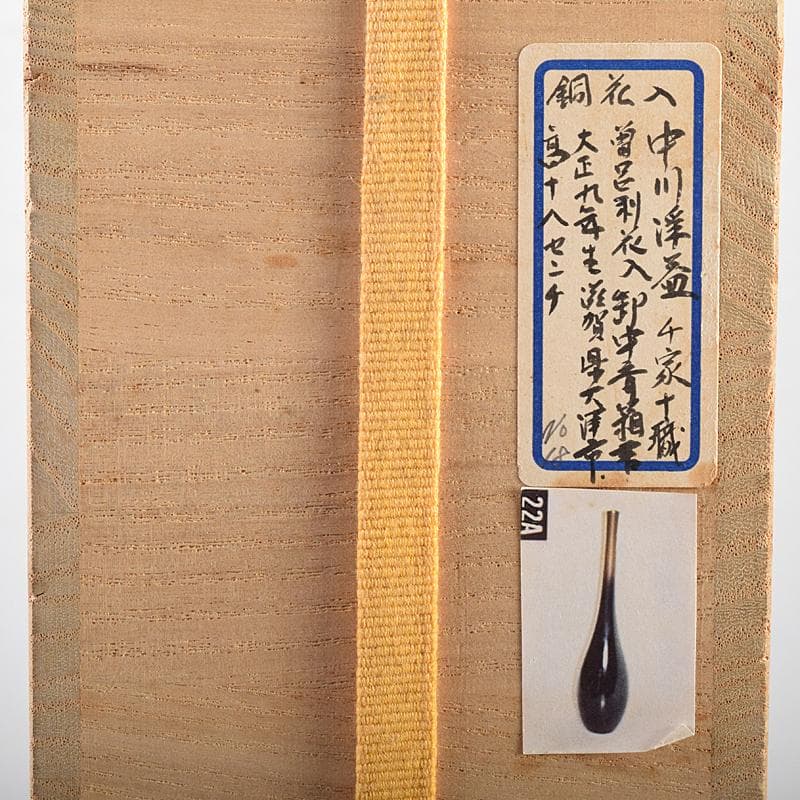 銅花入
中川浄益 千家十職
曽呂利花入 卸中斉箱書
大正九年生 滋賀県大津市.
高十八センチ
22A